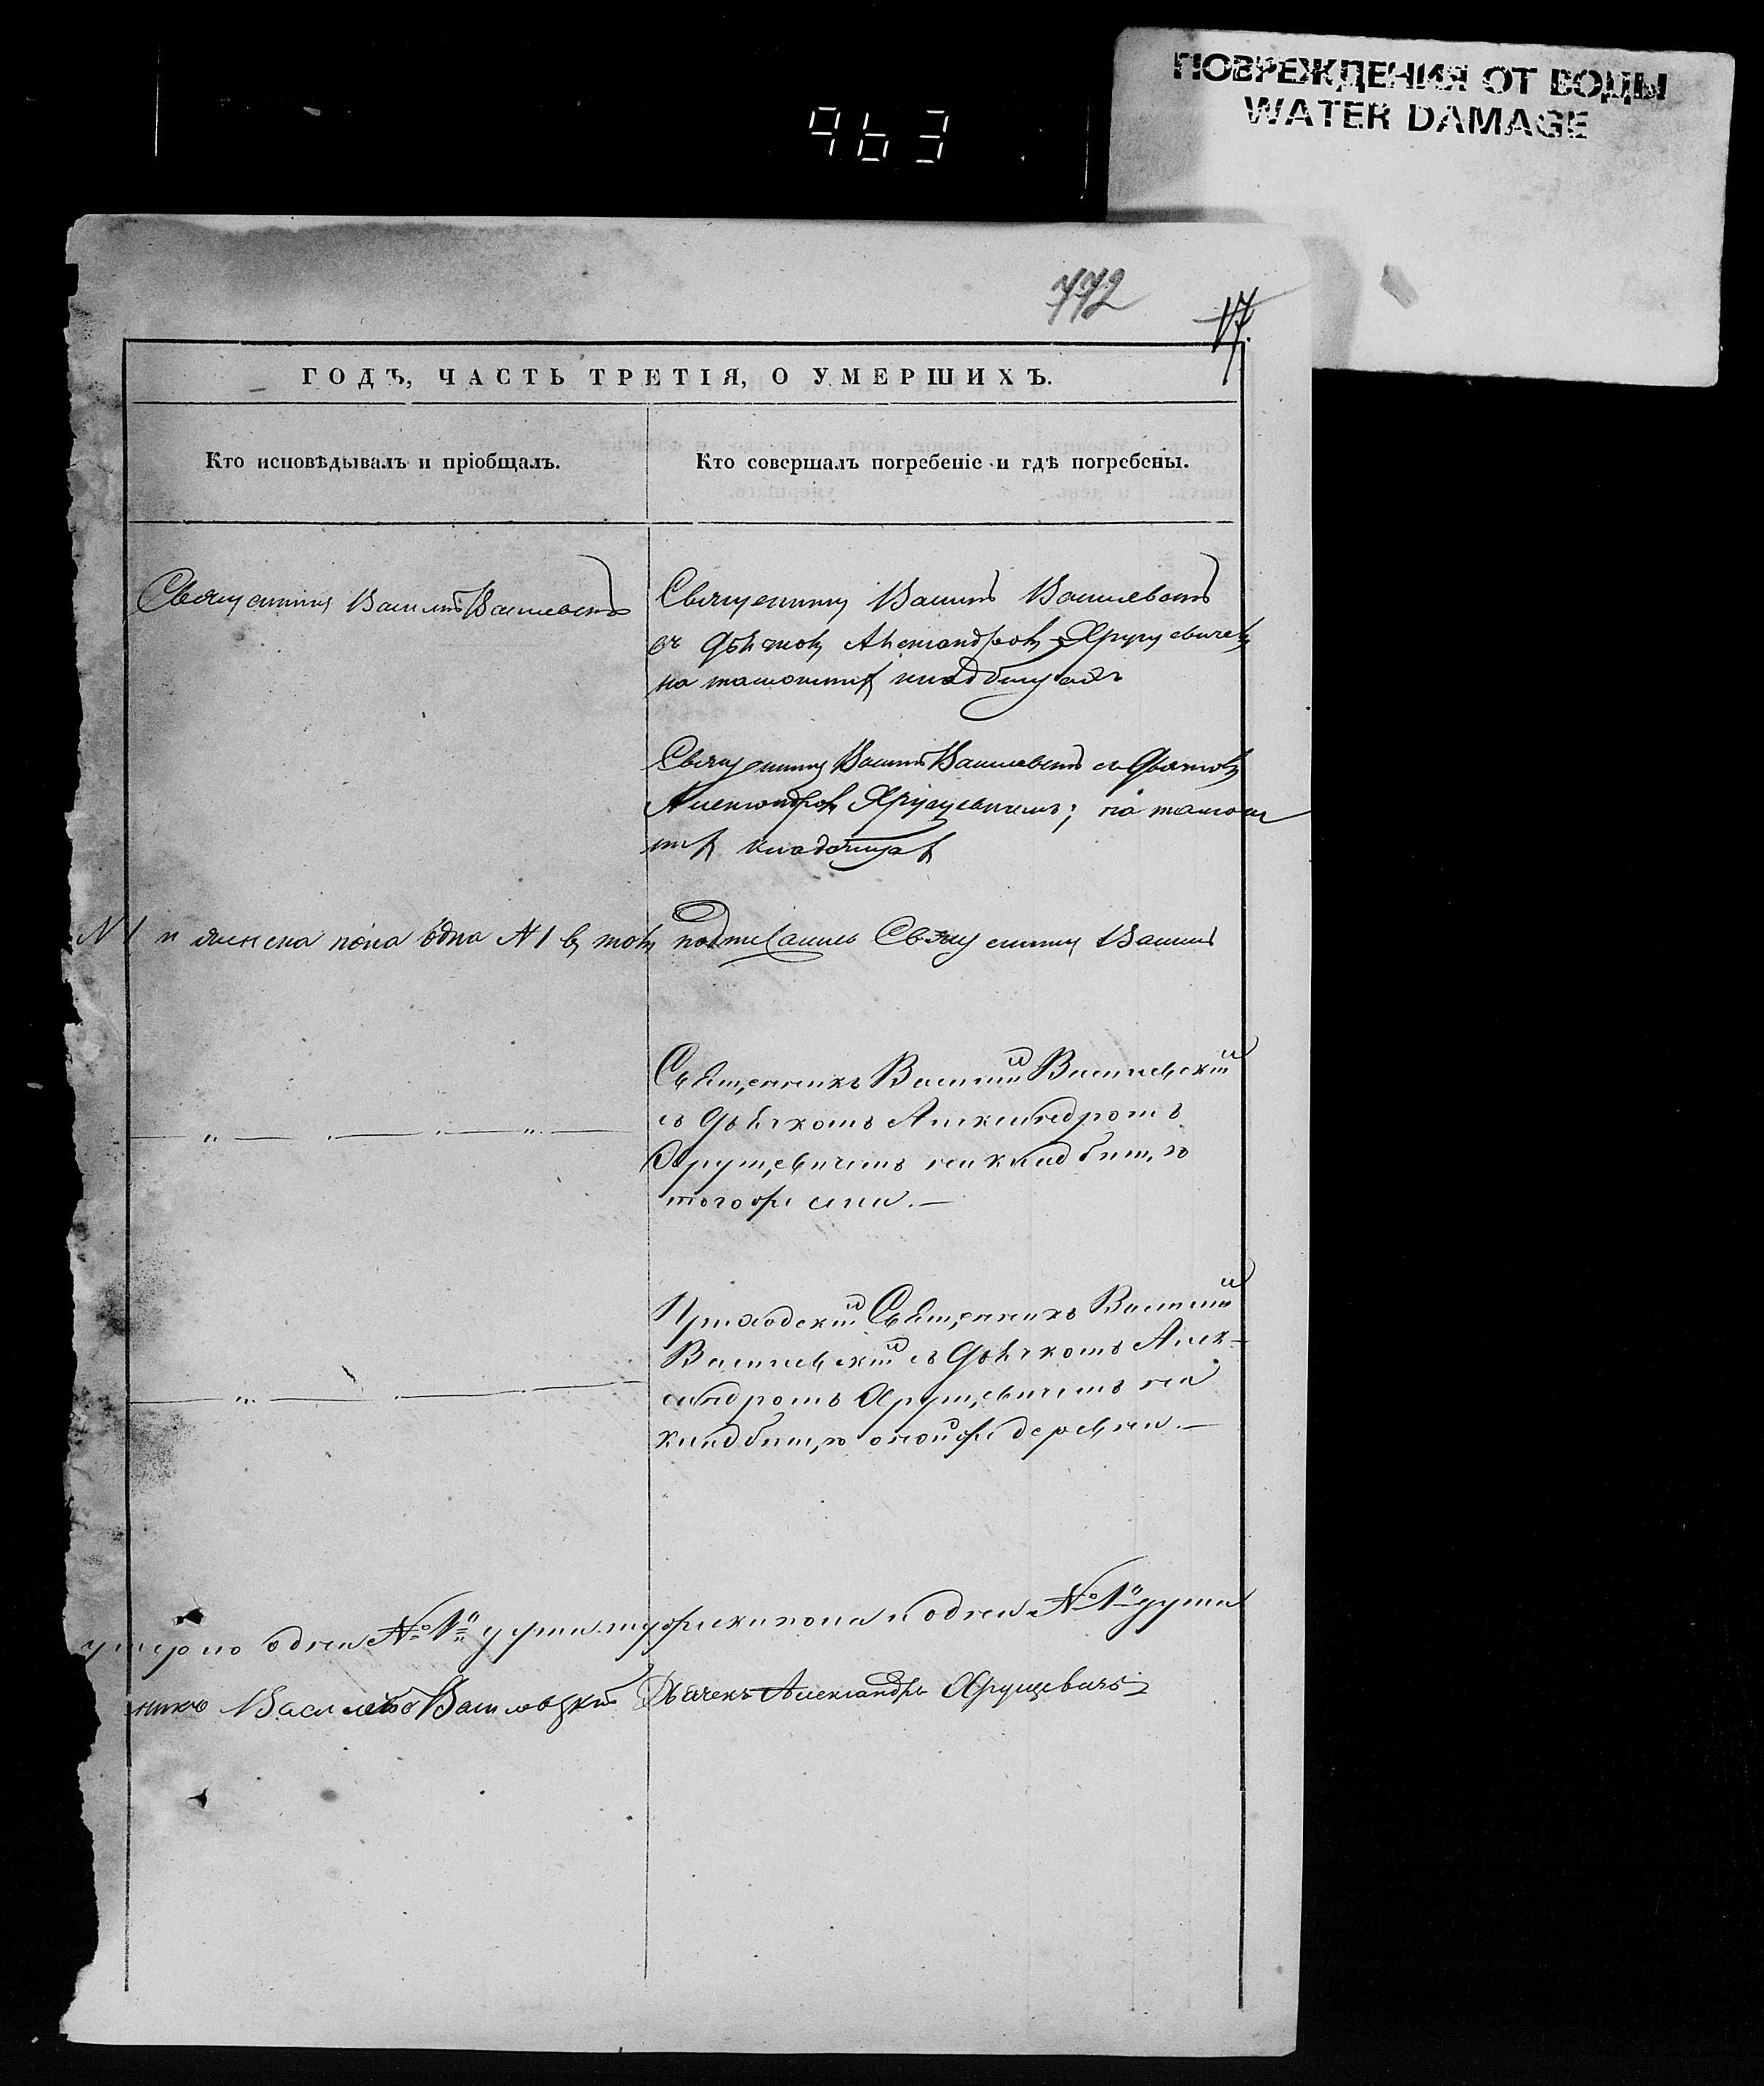 ПОВРЕЖДЕНИЯ ОТ ВОДЫ
WATER DAMAGE
963
772
17.
ГОДЪ, ЧАСТЬ ТРЕТІЯ, О УМЕРШИХЪ.
Кто исповѣдывалъ и пріобщалъ.
Кто совершалъ погребеніе и гдѣ погребены.
Священникъ Василій Василевскій
Священникъ Василій Василевскій
съ Дьячкомъ Александромъ Хрущевичемъ
на тамошнемъ кладбищѣ
Священникъ Василій Василевскій съ Дьячкомъ
Александромъ Хрущевичемъ; на тамош
немъ кладбищѣ
№ 1 и женска пола одна № 1 въ томъ подписались Священникъ Василій
Священникъ Василій Василевскій
съ Дьячкомъ Александромъ
Хрущевичемъ на кладбищѣ
того же села.—
Приходскій Священникъ Василій
Василевскій съ Дьячкомъ Алек-
сандромъ Хрущевичемъ на
кладбищѣ оной же деревни.—
одна № 1 душа мужеска пола и одна № 1 душа
никъ Василій Василевскій Дьячекъ Александръ Хрущевичъ